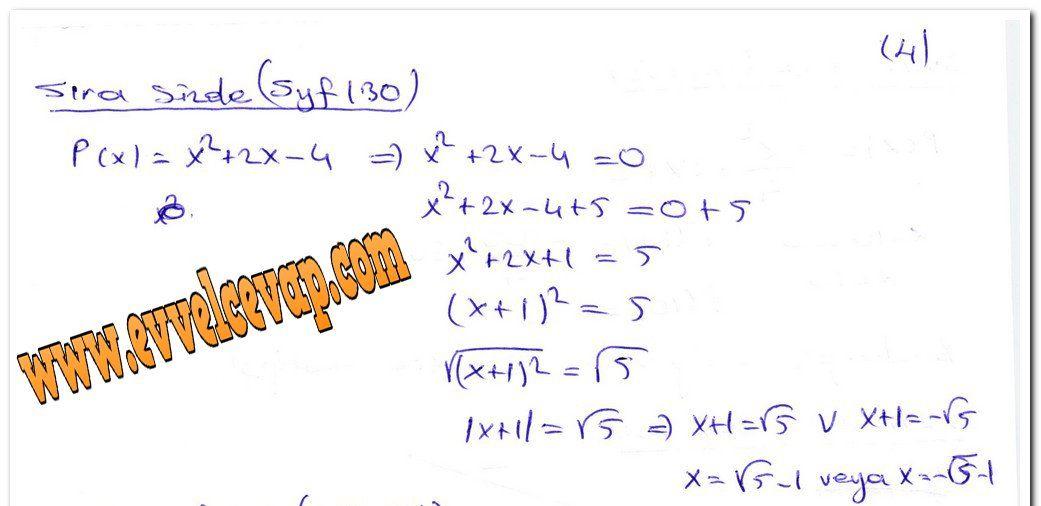 (4)
Sıra Sizde (Syf 130)
P(x) = x²+2x-4 => x²+2x-4 =0
x²+2x-4+5 =0+5
x²+2x+1 = 5
(x+1)² = 5
√(x+1)² = √5
|x+1| = √5 => x+1=√5 V x+1=-√5
x=√5-1 veya x=-√5-1
www.evvelcevap.com